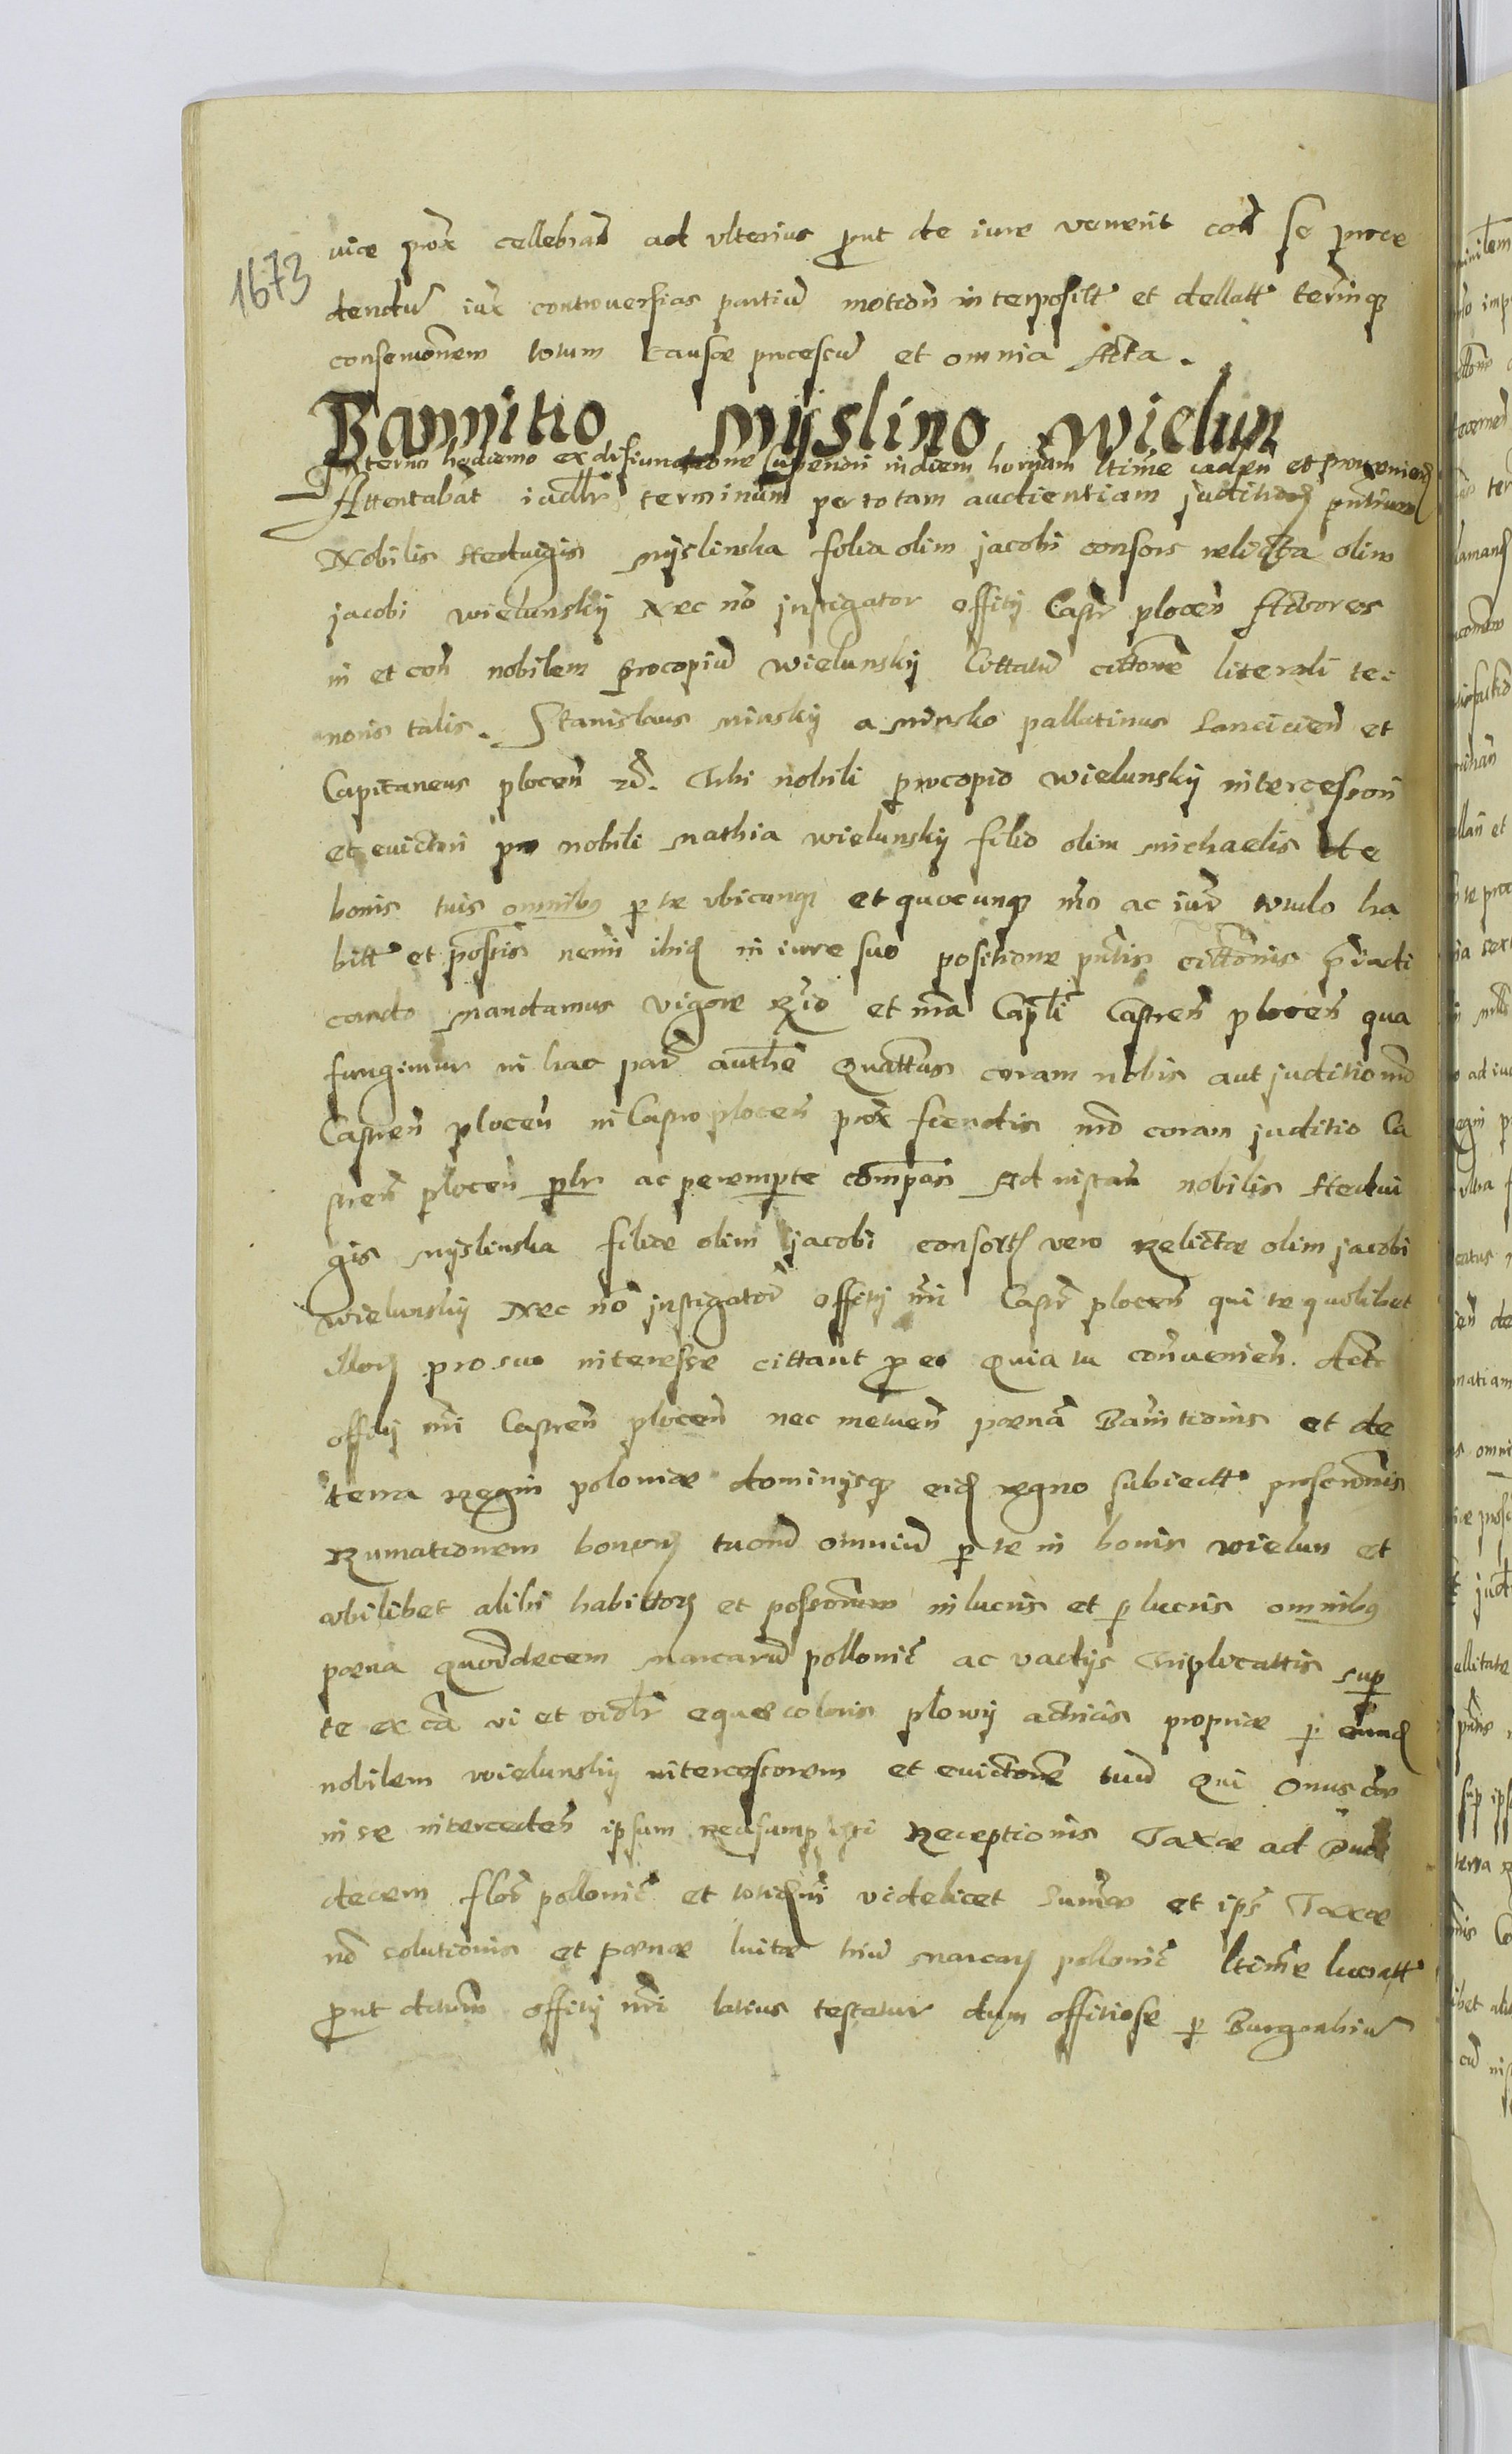 1673
vice prox cellebran ad vlterius prout de iure venerit coram se proce
dendum iux controuersias partium motion interposittas et dellattas terminqz
conseruationem totum causae processum et omnia Acta.
Bannitio Myslino Wielun
In termino hodierno ex disiunctione superiori in diem hornam ltime caden et prouenien
Attentabat iudlr terminum per totam audientiam juditiorz pntium
Nobilis Heduigis Myslinska folia olim jacobi consors relicta olim
jacobi Wielunskij Nec no jnstigator offitij Castr plocen Actores
in et con nobilem Procopiu Wielunskij Cittatu cittone literali te-
noris talis. Stanislaus Minskij a Minsko pallatinus Lancicien et
Capitaneus plocen zc. Tibi nobili procopio Wielunskij intercessori
et euictori pro nobili Mathia Wielunskij filio olim Michaelis de
bonis tuis omnibqz per te vbicunqz et quocunqz mo ac iur titulo ha
bitt et possis nemi ibidz in iure suo positione pntis cittonis priudi
cando Mandamus vigore Regio et nra Capli Castren plocen qua
fungimur in hac par authe Quattenus coram nobis aut juditio nro
Castren plocen in Castro plocen prox fiendis imo coram juditio Ca
stren plocen plr ac perempte compas Ad instan nobilis Hedui
gis Myslinska filiae olim jacobi consortz vero Relictae olim jacobi
Wielunskij Nec no jnstigatori offitij nri Castr plocen qui te quilibet
illorz pro suo interesse cittant pro eo Quia tu conuenien. Acte
offitij nri Castren plocen nec metuen poenam Bannitionis et de
terra Regni poloniae dominijsqz eidz regno subiectt proscronis
Rumationem bonorz tuoru omniu per te in bonis Wielun et
vbilibet alibi habittorz et possorum in lucris et pro lucris omnibqz
poena quordecem Marcaru pollonic ac vadijs Triplicattis sup
te ex ca vi et vidlr equae coloris plowij actricis propriae per eundz
nobilem Wielunskij intercessorem et euictore tuu Qui Onus
in se interceden ipsum Receptionis Taxae ad Duo
decem flor pollonic et totidem videlicet Sumae et ips Taxae
no solutionis et poenae luitae triu Marcarz pollonic ltime lucratt
prout decretum offitij nri latius testatur dum offitiose per Burgrabiu